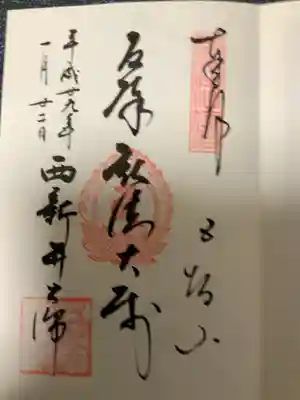 奉拝
五智山
厄除弘法大師
平成廿九年
一月廿二日
西新井大師